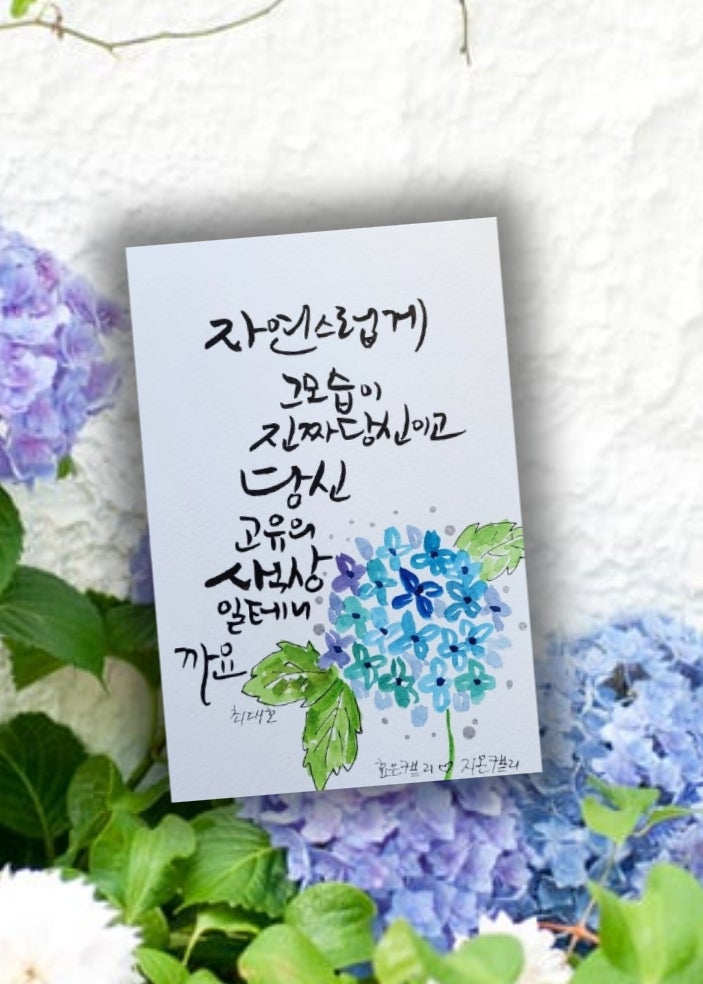 자연스럽게
그모습이
진짜당신이고
당신
고유의
색상
일테니
까요
최대호
효은캘리♡지몬캘리